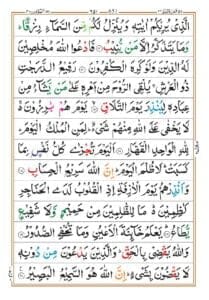 الَّذِىْ يُرِيْكُمْ اٰيٰتِهٖ وَيُنَزِّلُ لَكُمْ مِّنَ السَّمَآءِ رِزْقًاؕ
وَمَا يَتَذَكَّرُ اِلَّا مَنْ يُّنِيْبُ ۝ فَادْعُوا اللّٰهَ مُخْلِصِيْنَ
لَهُ الدِّيْنَ وَلَوْ كَرِهَ الْكٰفِرُوْنَ ۝ رَفِيْعُ الدَّرَجٰتِ
ذُو الْعَرْشِ يُلْقِى الرُّوْحَ مِنْ اَمْرِهٖ عَلٰى مَنْ يَّشَآءُ مِنْ
عِبَادِهٖ لِيُنْذِرَ يَوْمَ التَّلَاقِ ۝ يَوْمَ هُمْ بٰرِزُوْنَ
لَا يَخْفٰى عَلَى اللّٰهِ مِنْهُمْ شَىْءٌ لِمَنِ الْمُلْكُ الْيَوْمَ
لِلّٰهِ الْوَاحِدِ الْقَهَّارِ ۝ اَلْيَوْمَ تُجْزٰى كُلُّ نَفْسٍۭ بِمَا
كَسَبَتْ لَا ظُلْمَ الْيَوْمَ اِنَّ اللّٰهَ سَرِيْعُ الْحِسَابِ ۝
وَاَنْذِرْهُمْ يَوْمَ الْاٰزِفَةِ اِذِ الْقُلُوْبُ لَدَى الْحَنَاجِرِ
كٰظِمِيْنَ مَا لِلظّٰلِمِيْنَ مِنْ حَمِيْمٍ وَّلَا شَفِيْعٍ
يُّطَاعُ ۝ يَعْلَمُ خَآئِنَةَ الْاَعْيُنِ وَمَا تُخْفِى الصُّدُوْرُ ۝
وَاللّٰهُ يَقْضِىْ بِالْحَقِّ وَالَّذِيْنَ يَدْعُوْنَ مِنْ دُوْنِهٖ
لَا يَقْضُوْنَ بِشَىْءٍ اِنَّ اللّٰهَ هُوَ السَّمِيْعُ الْبَصِيْرُ ۝